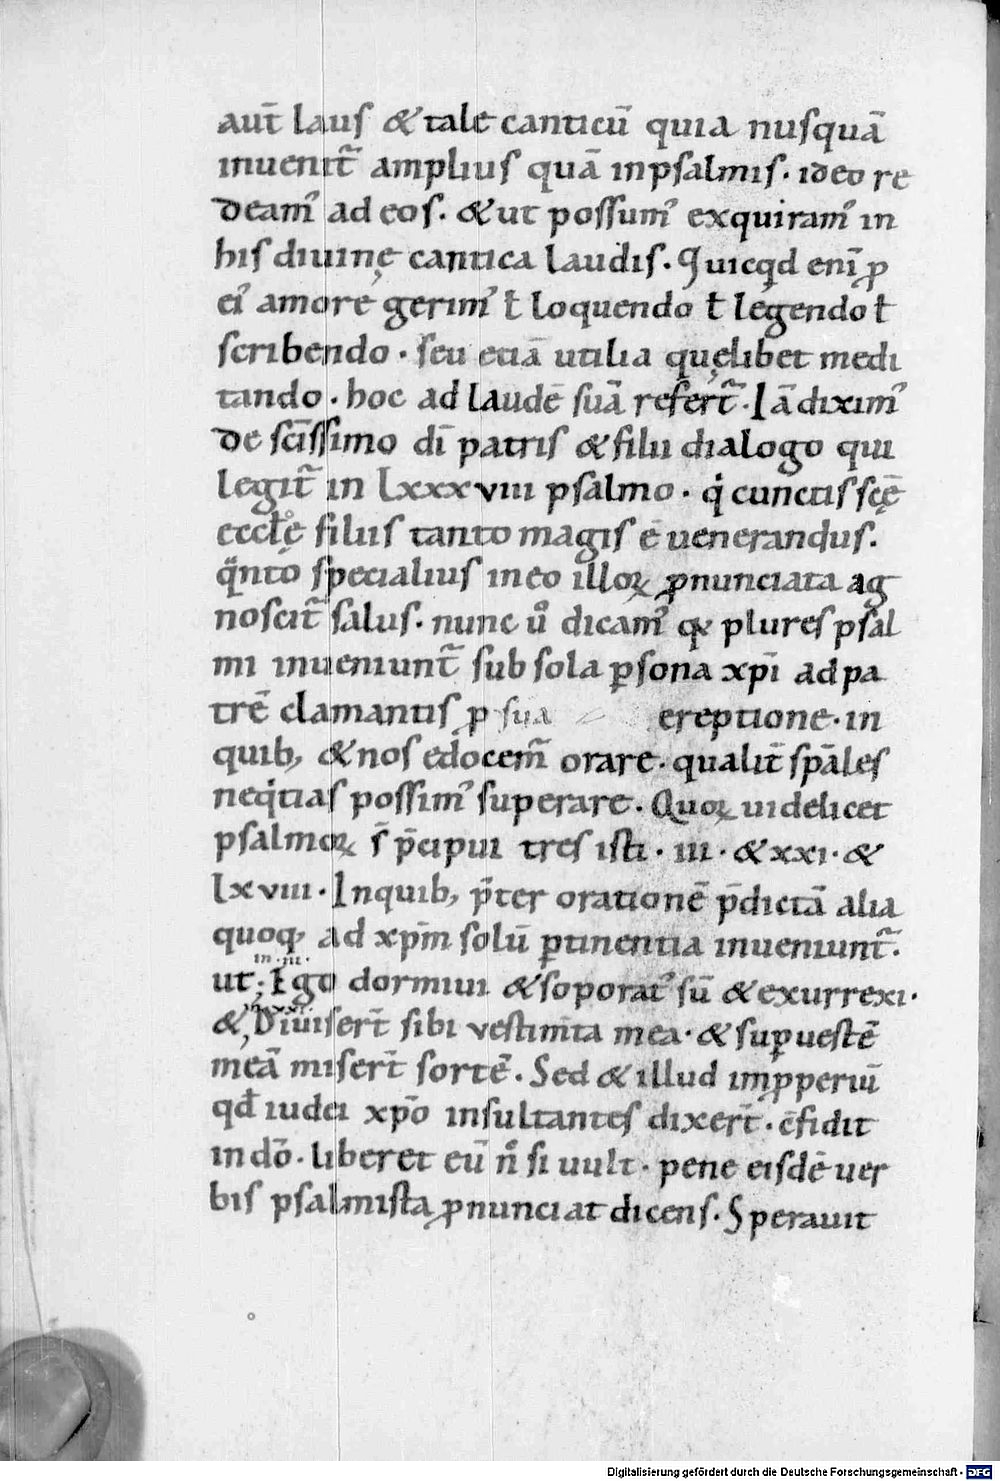 aut̄ laus & tale canticū quia nusquā
inuenit᷑ amplius quā in psalmis. ideo re
deam᷒ ad eos. & ut possum᷒ exquiram᷒ in
his diuinę cantica laudis. Quicq̇d enī ꝓ
ei᷒ amore gerim᷒ ł loquendo ł legendo ł
scribendo. seu etiā utilia quęlibet medi
tando. hoc ad laudē suā refert᷑. Iā dixim᷒
de scīssimo dī patris & filii dialogo qui
legit᷑ in lxxxviii psalmo. q̇ cunctis scę̄
eccłę filiis tanto magis ē uenerandus.
qᷓnto specialius in eo illoꝝ ꝓnunciata ag
noscit᷑ salus. nunc uͦ dicam᷒ qͥ plures psal
mi inueniunt᷑ sub sola ꝑsona xp̄i ad pa
trē clamantis ꝓ sua ereptione. in
quib; & nos edocem᷑ orare. qualit̄ sp̄ales
neq̇tias possim᷒ superare. Quoꝝ uidelicet
psalmoꝝ s̄ p̄cipui tres isti. iii. & xxi. &
lxviii. In quib; p̄ter orationē p̄dictā alia
quoq; ad xp̄m solū ꝑtinentia inueniunt᷑.
in .iii.
ut; Ego dormiui & soporat᷒ sū & exurrexi.
in xxi.
&; Diuisert̄ sibi vestim̄ta mea. & suꝑ uestē
meā misert̄ sortē. Sed & illud imꝓperiū
qđ iudei xp̄o insultantes dixert̄. c̄fidit
in dō. liberet eū nͨ si uult. pene eisdē uer
bis psalmista ꝓnunciat dicens. Sperauit
Digitalisierung gefördert durch die Deutsche Forschungsgemeinschaft - DFG